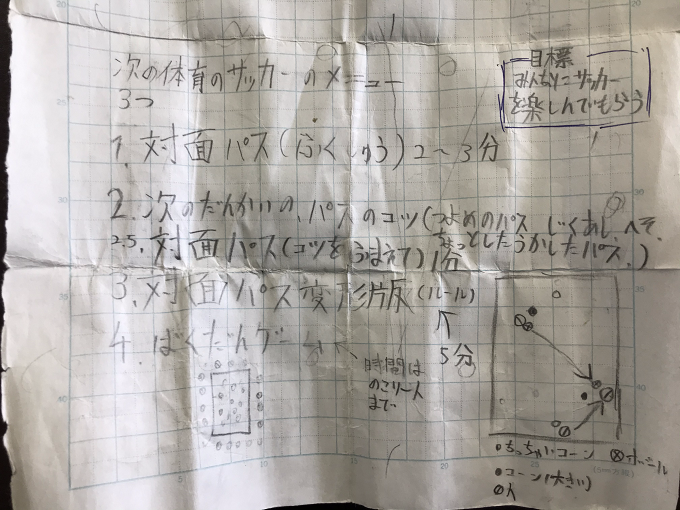 次の体育のサッカーのメニュー
3つ
目標
みんなにサッカー
を楽しんでもらう
1. 対面パス(ふくしゅう)2~3分
2. 次のだんかいの、パスのコツ(つよめのパス じくあし へそ
ちょっとしたうかしたパス。)
2.5. 対面パス(コツをふまえて)1分
3. 対面パス変形版(ルール)
5分
4. ばくだんゲーム
時間は
のこり一人
まで
ちっちゃいコーン ボール
コーン(大きい)
人